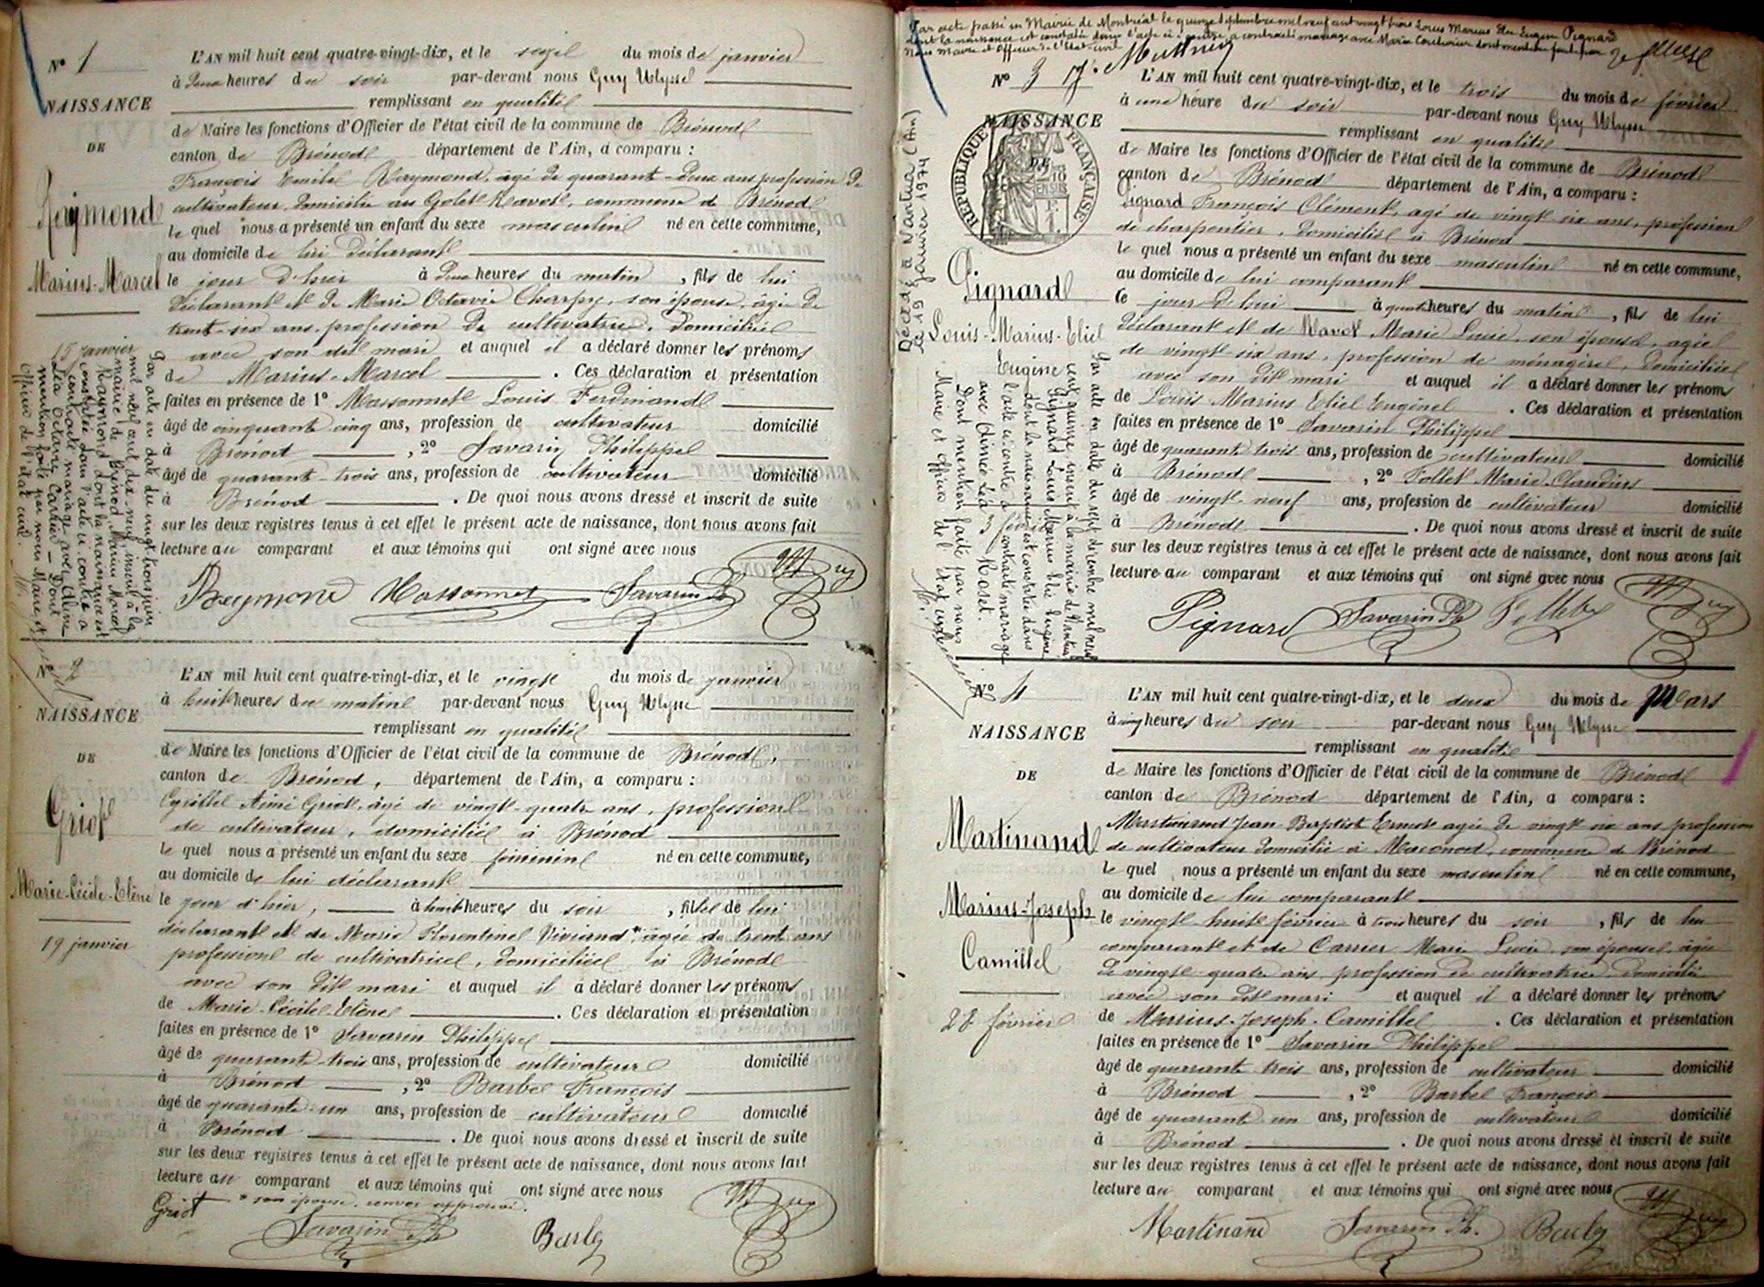 N° 1
NAISSANCE
DE
Reymond
Marius-Marcel
15 janvier
Par acte en date du vingt trois juin
mil neuf cent dix-neuf, inscrit à la
mairie de Brénod, Marius Marcel
Raymond dont la naissance est
constatée dans l'acte ci-contre a
contracté mariage avec
Léa Octavie Carrier - Dont
mention faite par nous Maire et
officier de l'état civil.
L'AN mil huit cent quatre-vingt-dix, et le seize du mois de janvier
à deux heures du soir par-devant nous Guy Ulysse
remplissant en qualité
de Maire les fonctions d'Officier de l'état civil de la commune de Brénod
canton de Brénod département de l'Ain, a comparu :
François Emile Raymond, agé de quarant-deux ans, profession de
cultivateur, domicilié au Golet Ravot, commune de Brénod
le quel nous a présenté un enfant du sexe masculin né en cette commune,
au domicile de lui déclarant
le jour d'hier à deux heures du matin, fils de lui
déclarant et de Marie Octavie Charpy, son épouse, agée de
trent-six ans, profession de cultivatrice, domiciliée
avec son dit mari et auquel il a déclaré donner les prénoms
de Marius-Marcel. Ces déclaration et présentation
faites en présence de 1° Massonnet Louis Ferdinand
âgé de cinquante cinq ans, profession de cultivateur domicilié
à Brénod, 2° Savarin Philippe
âgé de quarant-trois ans, profession de cultivateur domicilié
à Brénod. De quoi nous avons dressé et inscrit de suite
sur les deux registres tenus à cet effet le présent acte de naissance, dont nous avons fait
lecture au comparant et aux témoins qui ont signé avec nous
Reymond Massonnet Savarin Ph Guy
N° 2
NAISSANCE
DE
Griot
Marie-Cécile-Elène
19 janvier
L'AN mil huit cent quatre-vingt-dix, et le vingt du mois de janvier
à huit heures du matin par-devant nous Guy Ulysse
remplissant en qualité
de Maire les fonctions d'Officier de l'état civil de la commune de Brénod,
canton de Brénod, département de l'Ain, a comparu :
Cyrille Aimé Griot, âgé de vingt-quatre ans, profession
de cultivateur, domicilié à Brénod
le quel nous a présenté un enfant du sexe féminin né en cette commune,
au domicile de lui déclarant
le jour d'hier, à huit heures du soir, fille de lui
déclarant et de Marie Florentine Viviand* agée de trent ans
profession de cultivatrice, domiciliée à Brénod
avec son dit mari et auquel il a déclaré donner les prénoms
de Marie Cécile Elène. Ces déclaration et présentation
faites en présence de 1° Savarin Philippe
âgé de quarant-trois ans, profession de cultivateur domicilié
à Brénod, 2° Barbe François
âgé de quarante-un ans, profession de cultivateur domicilié
à Brénod. De quoi nous avons dressé et inscrit de suite
sur les deux registres tenus à cet effet le présent acte de naissance, dont nous avons fait
lecture au comparant et aux témoins qui ont signé avec nous
Griot * son épouse, renvoi approuvé.
Savarin Ph Barbe Guy
Par acte passé en Mairie de Montréal le quinze Septembre mil neuf cent vingt trois Louis Marius Elie Eugène Pignard
dont la naissance est constatée dans l'acte ci-contre a contracté mariage avec Marie Couturier dont mention faite par
Nous Maire et Officier de l'Etat-civil
N° 3
NAISSANCE
DE
RÉPUBLIQUE FRANÇAISE
Pignard
Louis-Marius-Elie
Eugène
3 février
Décédé à Nantua (Ain)
le 19 janvier 1974
Par acte en date du sept décembre mil neuf
cent quinze inscrit à la mairie de Nantua
Pignard Louis Marius Elie Eugène
dont la naissance est constatée dans
l'acte ci-contre a contracté mariage
avec Aimée Léa Roset.
Dont mention faite par nous
Maire et Officier de l'état civil
L'AN mil huit cent quatre-vingt-dix, et le trois du mois de février
à une heure du soir par-devant nous Guy Ulysse
remplissant en qualité
de Maire les fonctions d'Officier de l'état civil de la commune de Brénod
canton de Brénod département de l'Ain, a comparu :
Pignard François Clément, agé de vingt six ans, profession
de charpentier, domicilié à Brénod
le quel nous a présenté un enfant du sexe masculin né en cette commune,
au domicile de lui comparant
le jour d'hui à quatre heures du matin, fils de lui
déclarant et de Ravot Marie Lucie, son épouse, agée
de vingt six ans, profession de ménagère, domiciliée
avec son dit mari et auquel il a déclaré donner les prénoms
de Louis Marius Elie Eugène. Ces déclaration et présentation
faites en présence de 1° Savarin Philippe
âgé de quarante trois ans, profession de cultivateur domicilié
à Brénod, 2° Follet Marie-Claudius
âgé de vingt neuf ans, profession de cultivateur domicilié
à Brénod. De quoi nous avons dressé et inscrit de suite
sur les deux registres tenus à cet effet le présent acte de naissance, dont nous avons fait
lecture au comparant et aux témoins qui ont signé avec nous
Pignard Savarin Ph Guy
N° 4
NAISSANCE
DE
Martinand
Marius-Joseph
Camille
28 février
L'AN mil huit cent quatre-vingt-dix, et le deux du mois de Mars
à cinq heures du soir par-devant nous Guy Ulysse
remplissant en qualité
de Maire les fonctions d'Officier de l'état civil de la commune de Brénod
canton de Brénod département de l'Ain, a comparu :
Martinand Jean Baptiste Ernest agé de vingt six ans profession
de cultivateur domicilié à Macconod, commune de Brénod
le quel nous a présenté un enfant du sexe masculin né en cette commune,
au domicile de lui comparant
le vingt huit février à trois heures du soir, fils de lui
comparant et de Carrier Marie Lucie, son épouse, agée
de vingt-quatre ans, profession de cultivatrice, domiciliée
avec son dit mari et auquel il a déclaré donner les prénoms
de Marius-Joseph-Camille. Ces déclaration et présentation
faites en présence de 1° Savarin Philippe
âgé de quarant trois ans, profession de cultivateur domicilié
à Brénod, 2° Barbe François
âgé de quarant un ans, profession de cultivateur domicilié
à Brénod. De quoi nous avons dressé et inscrit de suite
sur les deux registres tenus à cet effet le présent acte de naissance, dont nous avons fait
lecture au comparant et aux témoins qui ont signé avec nous
Martinand Savarin Ph. Barbe Guy